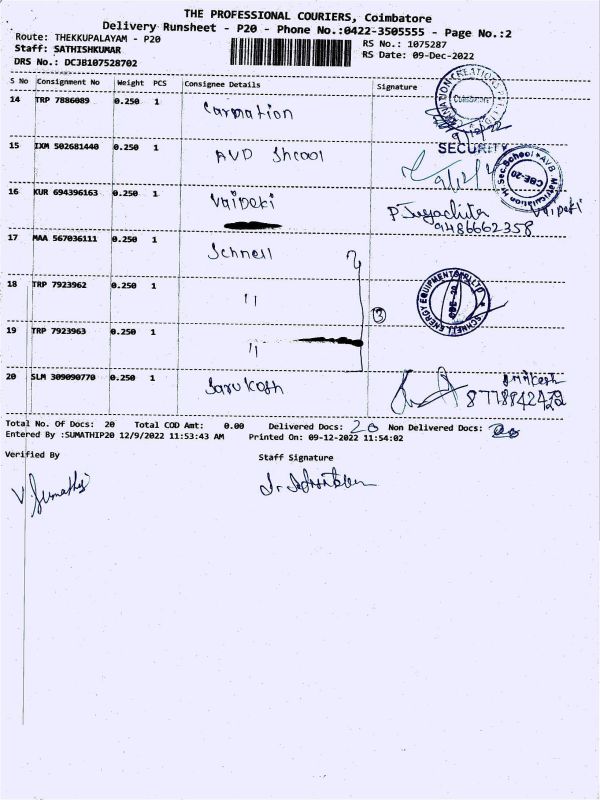 THE PROFESSIONAL COURIERS, Coimbatore
Delivery Runsheet - P20 - Phone No.:0422-3505555 - Page No.:2
Route: THEKKUPALAYAM - P20
RS No.: 1075287
Staff: SATHISHKUMAR
RS Date: 09-Dec-2022
DRS No.: DCJB107528702
S No Consignment No Weight PCS Consignee Details Signature
14 TRP 7886089 0.250 1 Carmation
COIMBATORE
9/12/22
SECURITY
15 IXM 502681440 0.250 1 AVD Shcool
9/12/
Matriculation Hr Sec. School * A.V.B.
CBE-20
16 KUR 694396163 0.250 1 Vaipaki
P. Jayachitra Vaipaki
9486662358
17 MAA 567036111 0.250 1 Schnell
18 TRP 7923962 0.250 1 "
3
SCHNELL ENERGY EQUIPMENTS (P) LTD
19 TRP 7923963 0.250 1 "
20 SLM 309090770 0.250 1 Sarukash
Total No. Of Docs: 20 Total COD Amt: 0.00 Delivered Docs: 20 Non Delivered Docs:
Entered By :SUMATHIP20 12/9/2022 11:53:43 AM Printed On: 09-12-2022 11:54:02
Verified By Staff Signature
V. Sumathi